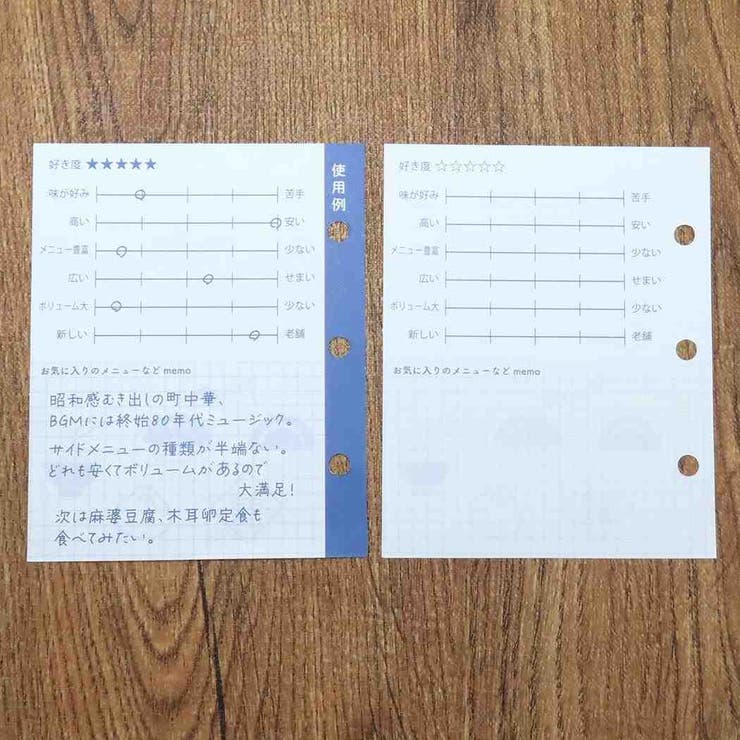 好き度 ★★★★★
味が好み 苦手
高い 安い
メニュー豊富 少ない
広い せまい
ボリューム大 少ない
新しい 老舗
お気に入りのメニューなど memo
昭和感むき出しの町中華、
BGMには終始80年代ミュージック。
サイドメニューの種類が半端ない。
どれも安くてボリュームがあるので
大満足!
次は麻婆豆腐、木耳卵定食も
食べてみたい。
使用例
好き度 ☆☆☆☆☆
味が好み 苦手
高い 安い
メニュー豊富 少ない
広い せまい
ボリューム大 少ない
新しい 老舗
お気に入りのメニューなど memo